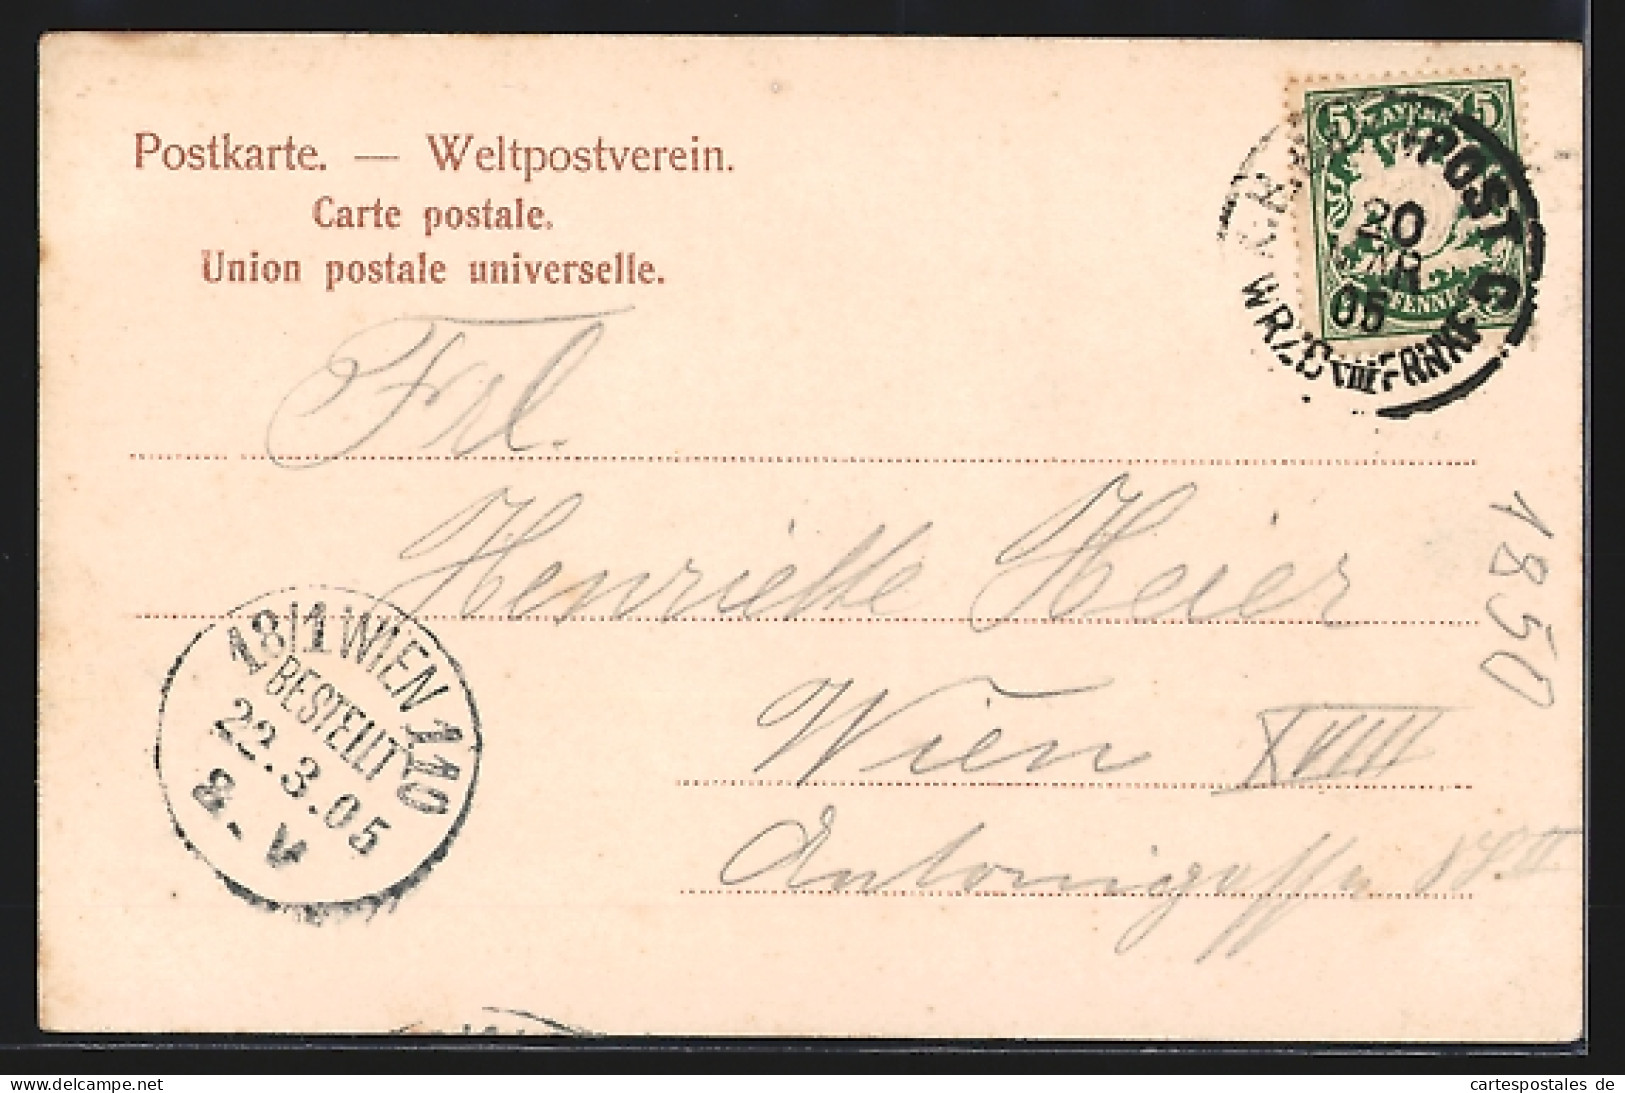 Postkarte. — Weltpostverein.
Carte postale.
Union postale universelle.
5 BAYERN 5
PFENNIG
POST
20
MAR
05
Frl.
Henriette Heier
Wien XVIII
Antonigasse
1850
18/1 WIEN 110
BESTELLT
22.3.05
8-V
delcampe.net
cartespostales de